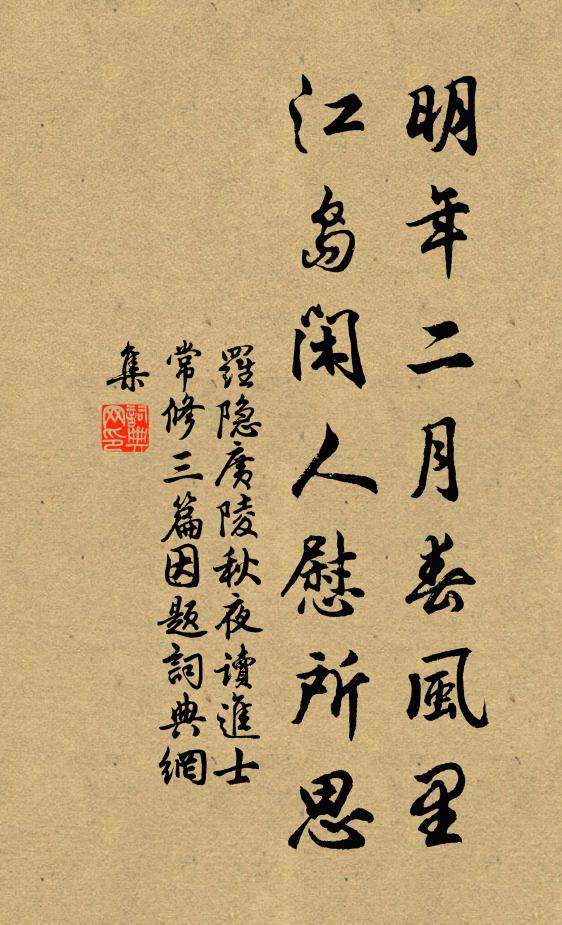 明年二月春風里
江島閑人慰所思
羅隐廣陵秋夜讀進士
常修三篇因題詞典網
集
詞典
网印